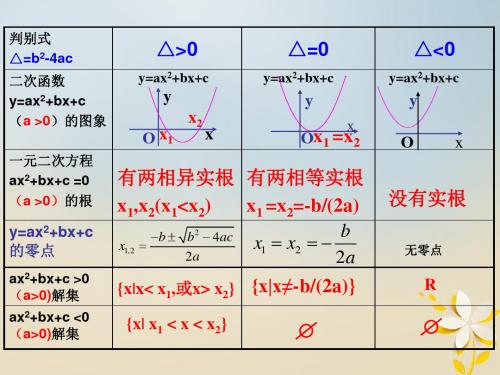 判别式
△=b²-4ac
△>0
△=0
△<0
二次函数
y=ax²+bx+c
（a >0）的图象
y=ax²+bx+c
y
x₂
O x₁ x
y=ax²+bx+c
y
x
O x₁ =x₂
y=ax²+bx+c
y
O x
一元二次方程
ax²+bx+c =0
（a >0）的根
有两相异实根
x₁,x₂(x₁<x₂)
有两相等实根
x₁ =x₂=-b/(2a)
没有实根
y=ax²+bx+c
的零点
x₁,₂ = (-b ± √(b² - 4ac)) / 2a
x₁ = x₂ = - b / 2a
无零点
ax²+bx+c >0
（a>0)解集
{x|x< x₁,或x> x₂}
{x|x≠-b/(2a)}
R
ax²+bx+c <0
（a>0)解集
{x| x₁ < x < x₂}
∅
∅